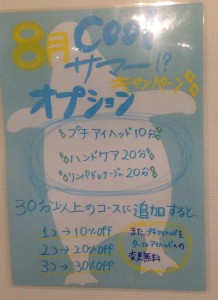 8月 COOL
サマー!?
キャンペーン
オプション
プチアイヘッド10分
ハンドケア20分
リンパドレナージュ20分
30分以上のコースに追加すると
1コ→10%off
2コ→20%off
3コ→30%off
また プチアイヘッドを
クールアイヘッドへの
変更無料